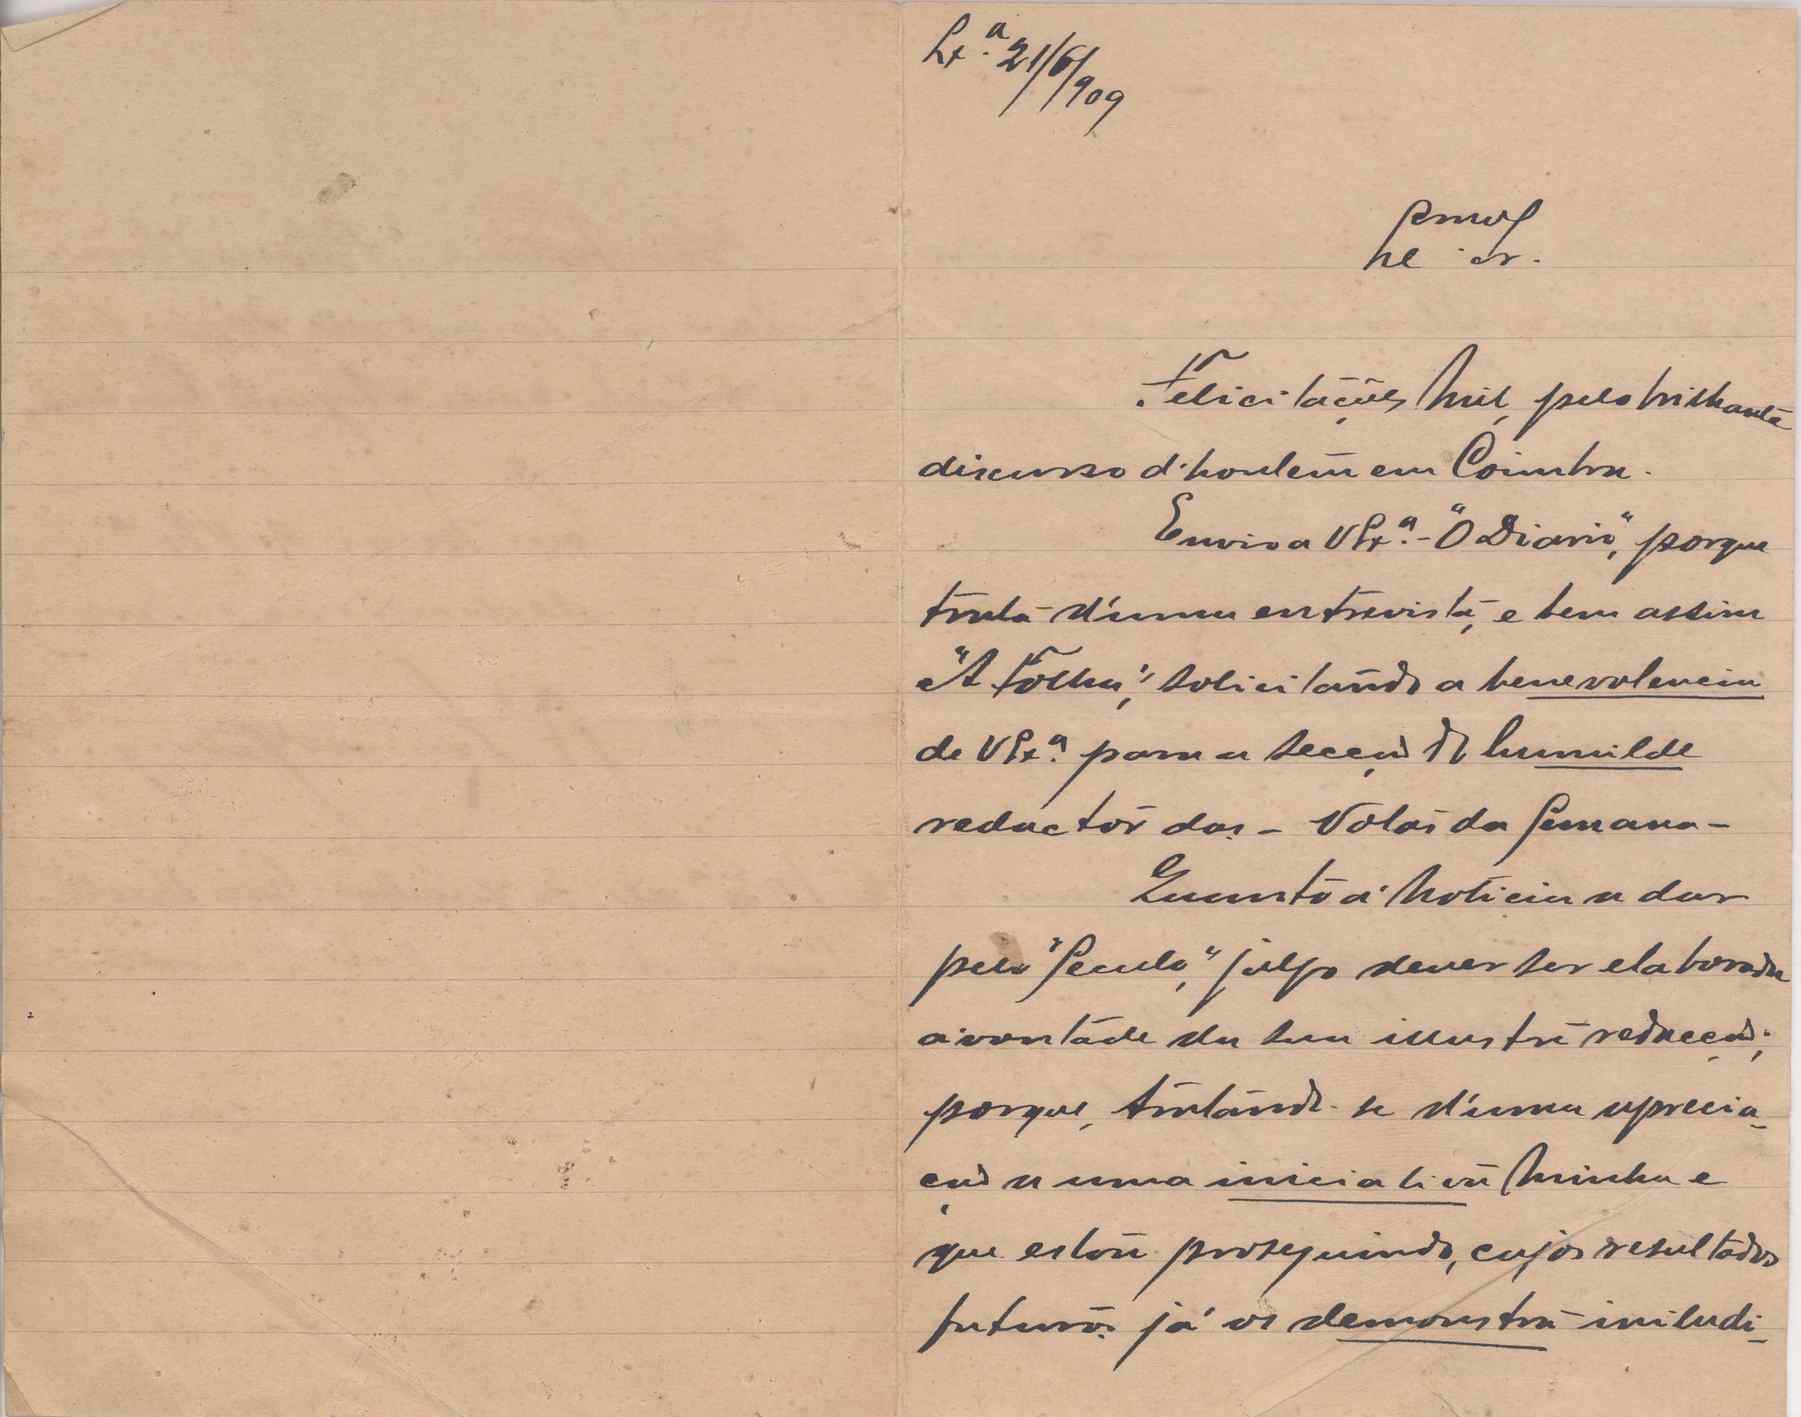 Lx.ª 21/6/909
Felicitações mil, pelo brilhante
discurso d'hontem em Coimbra.
Envio a V Ex.ª - "O Diario", porque
trata d'uma entrevista, e bem assim
"A Folha", solicitando a benevolencia
de V Ex.ª para a secção do humilde
reductor das - Notas da Semana -
Quanto á noticia a dar
pelo "Seculo", julgo dever ser elaborada
á vontade da sua illustre redacção;
porque, tratando-se d'uma aprecia-
ção a uma iniciativa minha e
que estou proseguindo, cujos resultados
futuros já os demonstra iniludi-